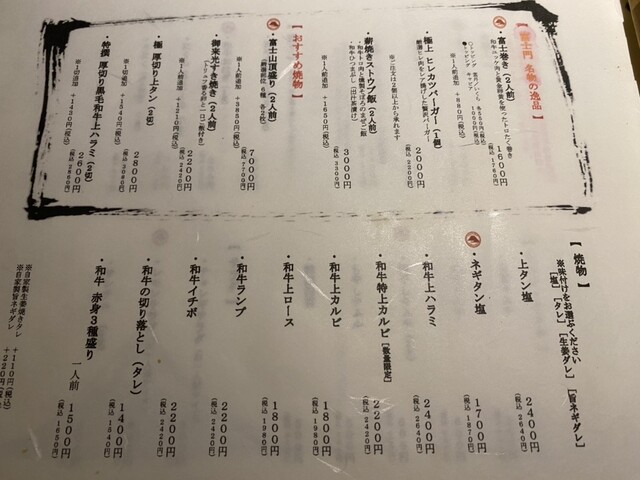 【富士門 名物の逸品】
・富士巻き（2人前） 1600円
和牛ユッケ肉と黄金卵黄を使ったトロたく巻き （税込 1760円）
※1人前追加 +880円（税込）
・極上 ヒレカツバーガー（1個） 2000円
（税込 2200円）
※ご注文は2個以上から承れます
・薪焼きストウブ飯（2人前） 3000円
・和牛トロ肉と燻製もろみのまぜご飯
・和牛ひつまぶし（出汁・薬味付） （税込 3300円）
※1人前追加 +1650円（税込）
【おすすめ焼物】
・富士山頂盛り（2人前） 7000円
（税込 7700円）
※1人前追加 +3850円（税込）
・御来光すき焼き（2人前） 2200円
（税込 2420円）
※1人前追加 +1210円（税込）
・極 厚切り上タン（2切） 2800円
（税込 3080円）
※1切追加 +1540円（税込）
・特撰 厚切り黒毛和牛上ハラミ（2切） 2600円
（税込 2860円）
※1切追加 +1430円（税込）
【焼物】
※味付けをお選びください
［塩］［タレ］［生姜ダレ］［旨ネギダレ］
・上タン塩 2400円
（税込 2640円）
・ネギタン塩 1700円
（税込 1870円）
・和牛上ハラミ 2400円
（税込 2640円）
・和牛特上カルビ［数量限定］ 2200円
（税込 2420円）
・和牛上カルビ 1800円
（税込 1980円）
・和牛上ロース 1800円
（税込 1980円）
・和牛ランプ 2200円
（税込 2420円）
・和牛イチボ 2200円
（税込 2420円）
・和牛の切り落とし（タレ） 1400円
（税込 1540円）
・和牛 赤身3種盛り 一人前 1500円
（税込 1650円）
※自家製生姜焼きタレ +110円（税込）
※自家製旨ネギダレ +220円（税込）